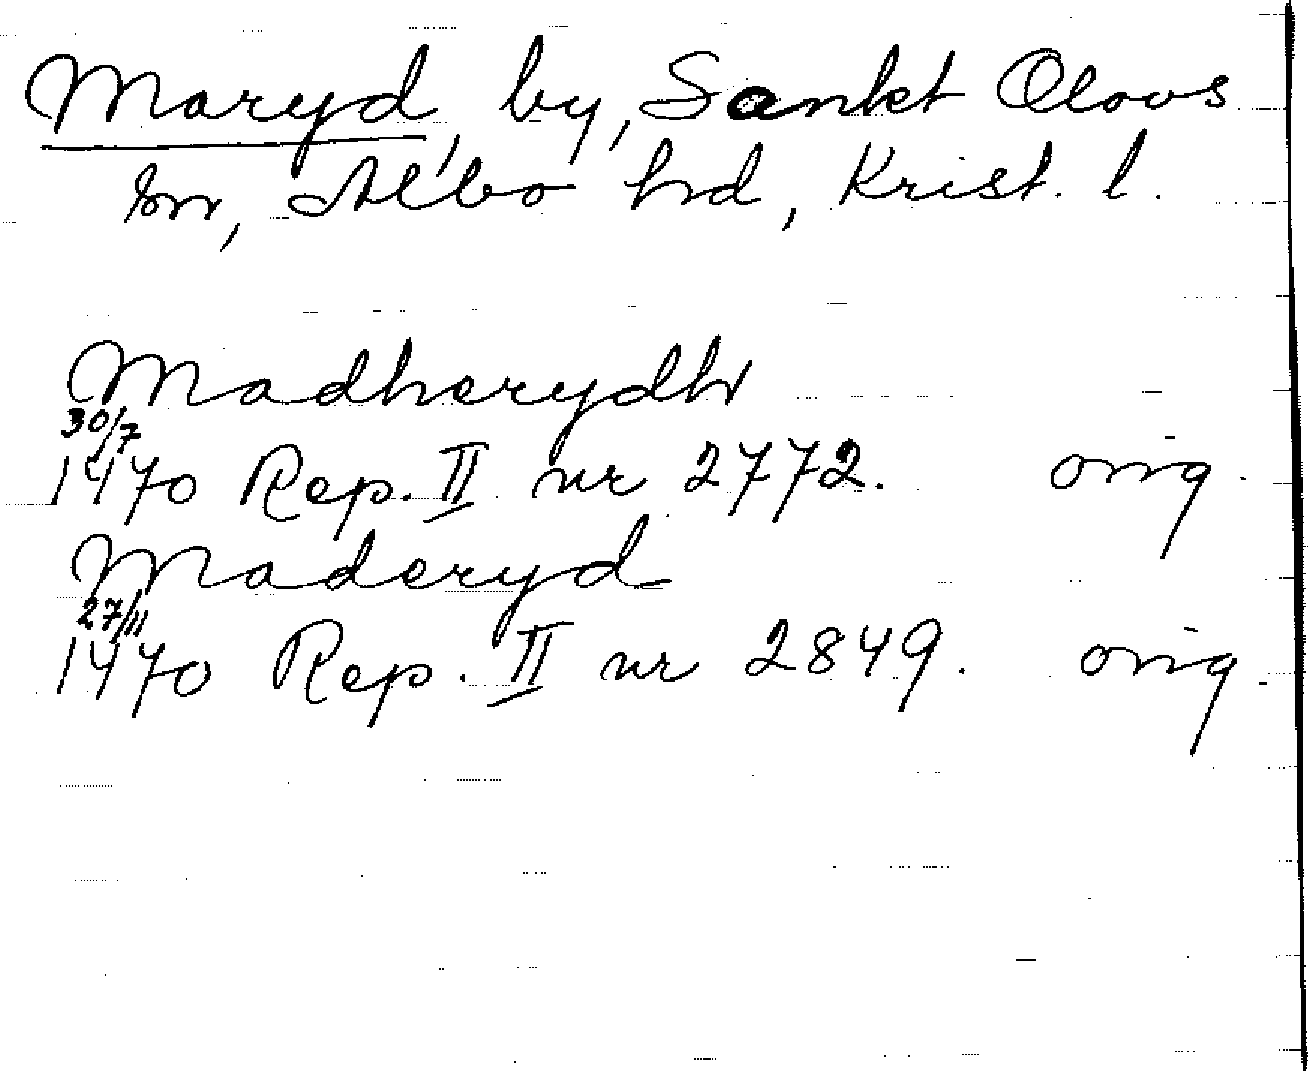 Maryd, by, Sankt Olovs
sn, Albo hd, Krist. l.
Madherydh
30/7
1470 Rep. II nr 2772. orig.
Maderyd
27/11
1470 Rep. II nr 2849. orig.